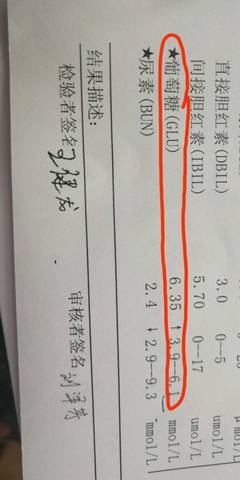 直接胆红素(DBIL) 3.0 0--5 μmol/L
间接胆红素(IBIL) 5.70 0--17 umol/L
★葡萄糖(GLU) 6.35 ↑ 3.9--6.1 mmol/L
★尿素(BUN) 2.4 ↓ 2.9--9.3 mmol/L
结果描述:
检验者签名 审核者签名